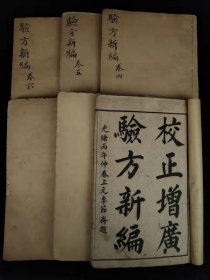 驗方新編 卷六
驗方新編 卷五
驗方新編 卷四
校正增廣
驗方新編
光緒丙午仲春上元李節齋題